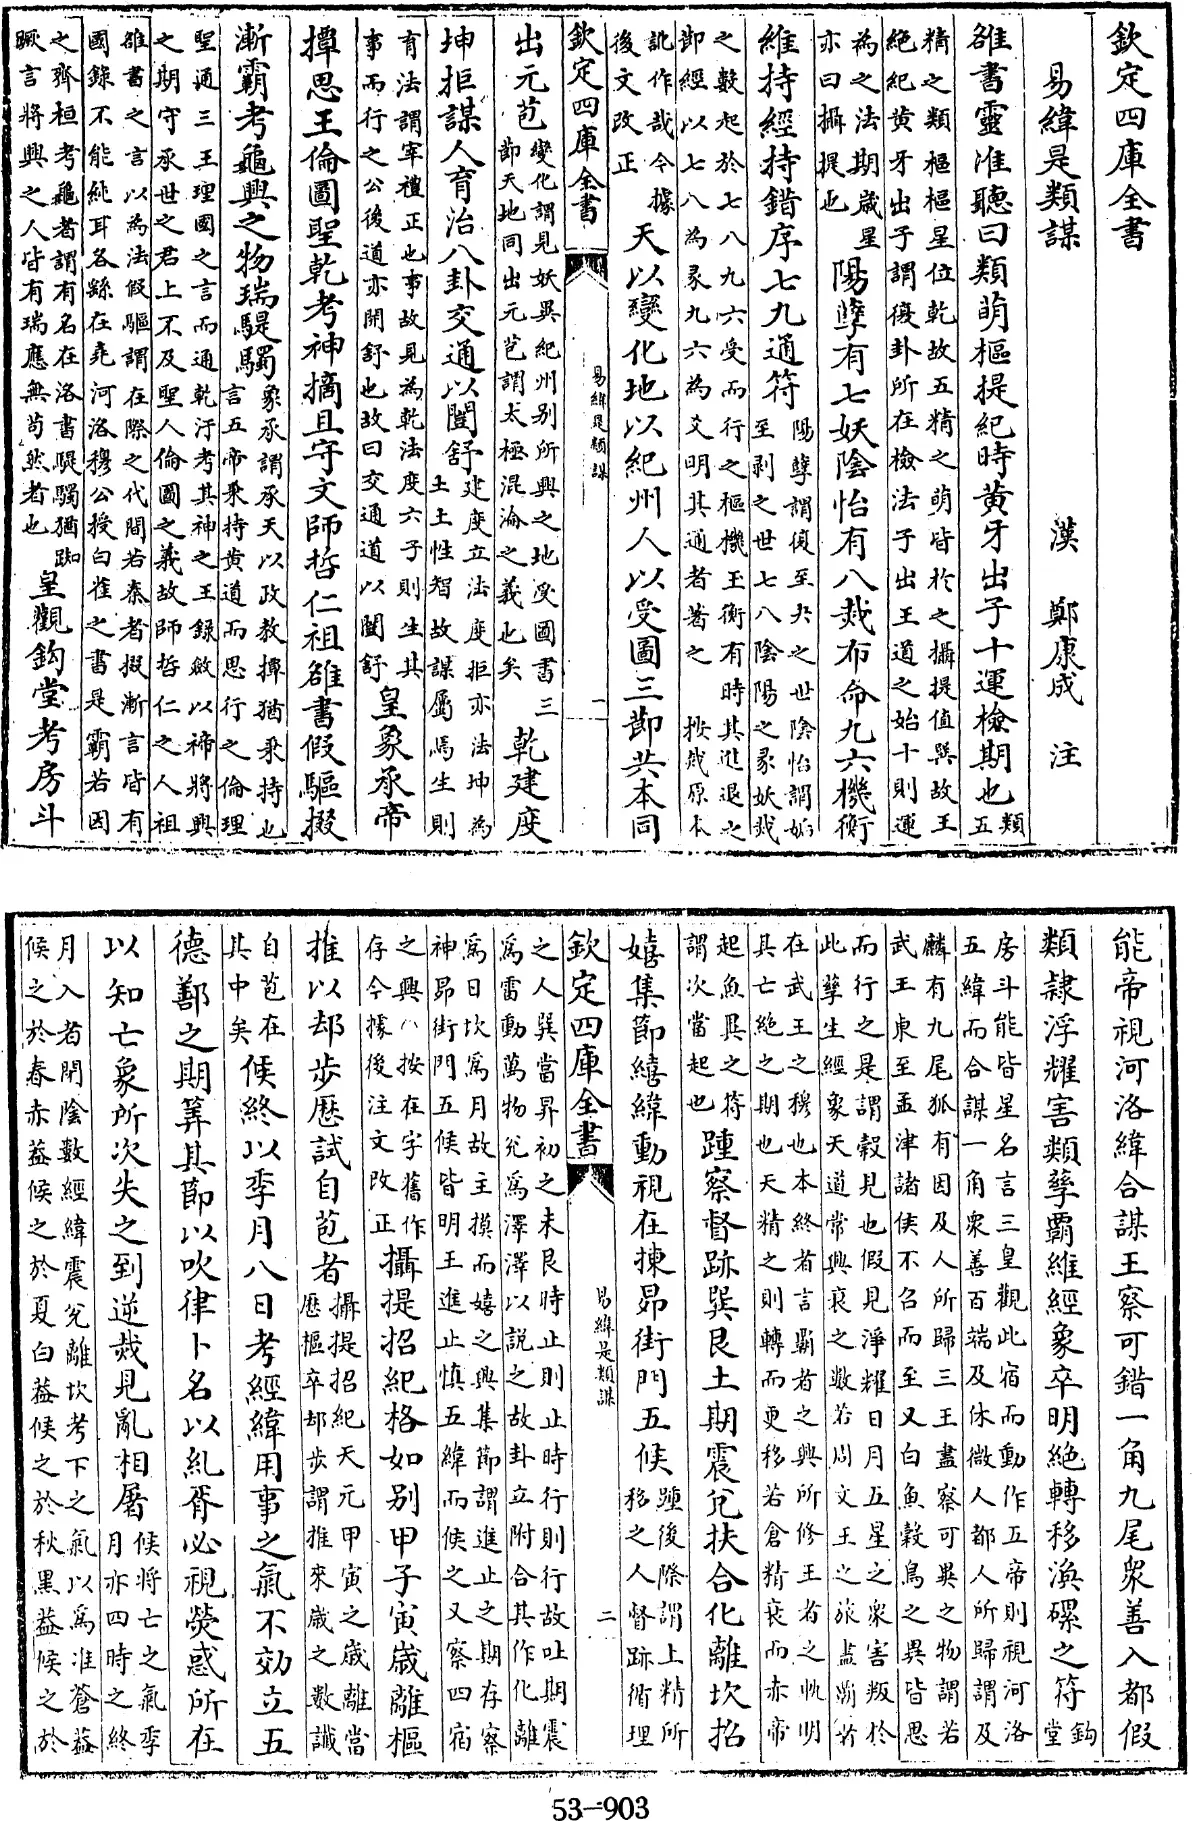 欽定四庫全書
易緯是類謀 漢 鄭康成 注
雒書靈准聽曰類萌樞提紀時黃牙出子十運檢期也類五
精之類樞樞星位乾故五精之萌皆於之攝提值巽故王
絶紀黃牙出子謂復卦所在檢法子出王道之始十則運
為之法期歲星亦曰攝提也陽孽有七妖陰怡有八烖布命九六機衡
維持經持錯序七九通符陽孽謂復至夬之世陰怡謂姤至剥之世七八陰陽之彖妖烖
之數起於七八九六受而行之樞機玉衡有時其進退之
卽經以七八為彖九六為爻明其通者著之 按烖原本
訛作哉今據後文改正天以變化地以紀州人以受圖三節共本同
欽定四庫全書 易緯是類謀 一
出元苞變化謂見妖異紀州别所興之地受圖書三節天地同出元苞謂太極混淪之義也矣乾建度
坤拒謀人育治八卦交通以闓舒建度立法度拒亦法坤為土土性智故謀屬焉生則
育法謂宰禮正也事故見為乾法度六子則生其事而行之公後道亦開舒也故曰交通道以闓舒皇象承帝
撢思王倫圖聖乾考神摘且守文師哲仁祖雒書假驅掇
漸霸考龜興之物瑞騠驧象承謂承天以政教撢猶秉持也言五帝秉持黄道而思行之倫理
聖通三王理國之言而通乾汙考其神之王錄斂以禘將興
之期守承世之君上不及聖人倫圖之義故師哲仁之人祖
雒書之言以為法假驅謂在際之代間若秦者掇漸言皆有
國錄不能純耳各繇在堯河洛穆公授白雀之書是霸若因
之齊桓考龜者謂有名在洛書騠驧猶踟厥言將興之人皆有瑞應無苟然者也皇觀鈎堂考房斗
能帝視河洛緯合謀王察可錯一角九尾衆善入都假
類隷浮耀害類孽霸維經象卒明絶轉移渙磥之符鈎堂
房斗能皆星名言三皇觀此宿而動作五帝則視河洛
五緯而合謀一角衆善百端及休徵人都人所歸謂及
麟有九尾狐有因及人所歸三王盡察可異之物謂若
武王東至孟津諸侯不召而至又白魚穀鳥之異皆思
而行之是謂穀見也假見浮耀日月五星之衆害叛於
此孽生經象天道常興衰之數若周文王之旅盡漸若
在武王之穆也本終者言霸者之興所修王者之帆明
其亡絶之期也天精之則轉而更移若倉精衰而赤帝
起魚異之符謂次當起也踵察督跡巽艮土期震兌扶合化離坎招
嬉集節繥緯動視在捒昴街門五候踵後際謂上精所移之人督跡循理
欽定四庫全書 易緯是類謀 二
之人巽當昇初之未艮時止則止時行則行故吐期震
為雷動萬物兌為澤澤以説之故卦立附合其作化離
為日坎為月故主摸而嬉之興集節謂進止之期存察
神昴街門五候皆明王進止慎五緯而候之又察四宿
之興八按在字舊作存今據後注文改正攝提招紀格如别甲子寅歲離樞
推以却步歷試自苞者攝提招紀天元甲寅之歲離當歷樞卒却步謂推來歲之數識
自苞在其中矣候終以季月八日考經緯用事之氣不効立五
德鄯之期筭其節以吹律卜名以糺胥必視熒惑所在
以知亡象所次失之到逆烖見亂相屠候將亡之氣季月亦四時之終
月入者閉陰數經緯震兌離坎考下之氣以為准蒼蓋
候之於春赤蓋候之於夏白蓋候之於秋黑蓋候之於
53-903